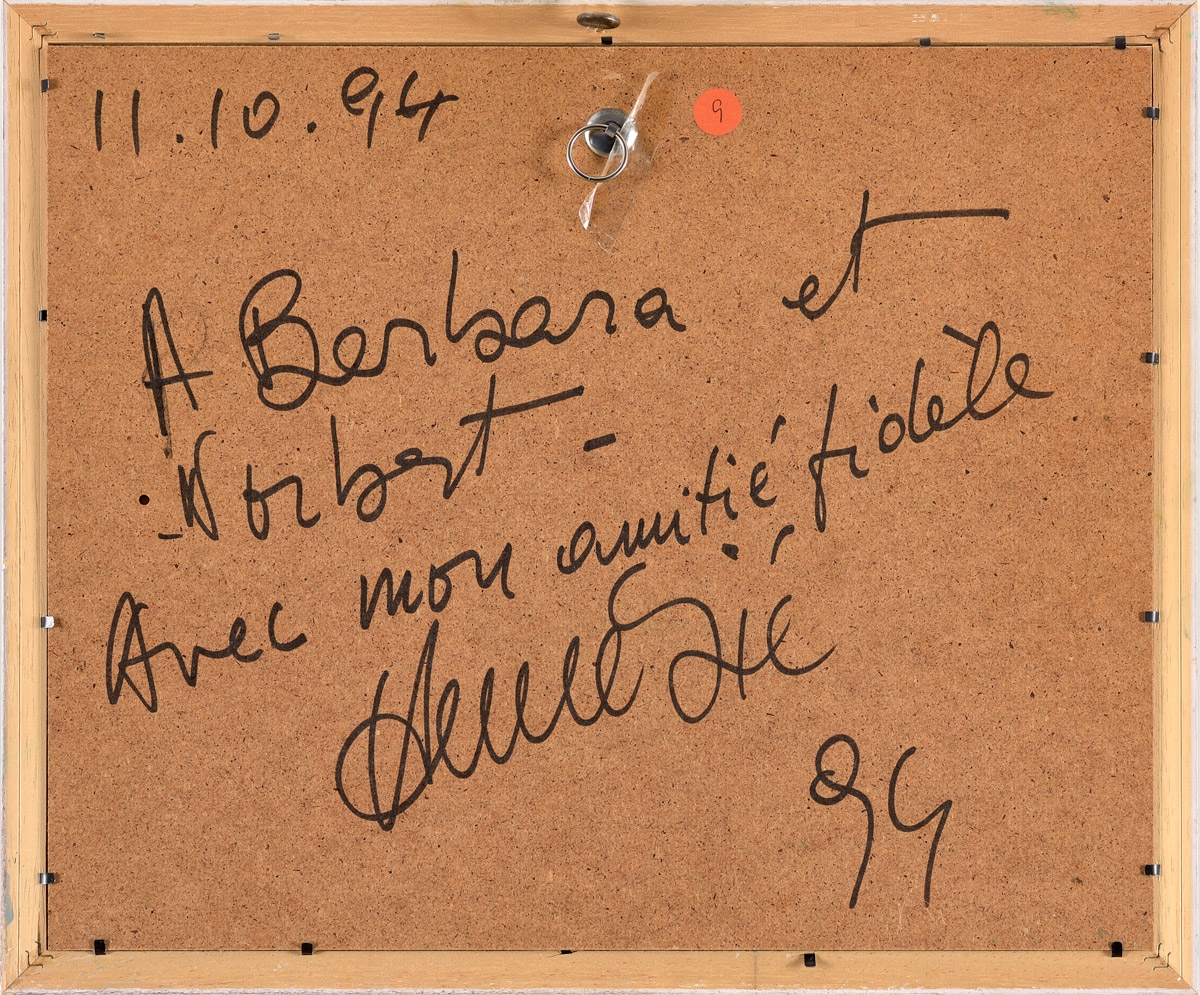 11.10.94
9
A Barbara et
Norbert -
Avec mon amitié fidèle
94